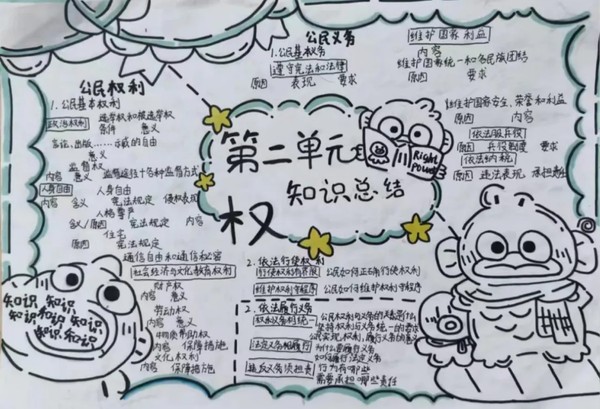 公民权利
1.公民基本权利
政治权利 选举权和被选举权
条件 意义
言论、出版……示威的自由
意义
监督权
内容 意义 监督途径 十各种监督方式
人身自由 人身自由
内容 含义 宪法规定 侵权表现
人格尊严
含义/原因 宪法规定 内容
住宅
原因 宪法规定
通信自由和通信秘密
社会经济与文化教育权利
财产权
内容 意义
劳动权
内容 意义
物质帮助权
内容 保障措施
文化权利
内容 保障措施
知识 知识
知识 知识 知识
知识 知识
第二单元
知识总结
权
Right
Power
公民义务
1.公民基本义务
遵守宪法和法律
原因 表现 要求
维护国家利益
内容
维护国家统一和各民族团结
原因 要求
维护国家安全、荣誉和利益
原因 内容
依法服兵役
原因 兵役制度 要求
依法纳税
原因 违法表现 承担责任
2.依法行使权利
行使权利有界限 公民如何正确行使权利
维护权利守程序 公民如何维护权利守程序
2.依法履行义务
权利义务相统一 公民权利与义务的关系是什么
坚持权利与义务统一的要求
公民实现权利、履行义务的意义
法定义务须履行 为什么要履行义务
如何履行法定义务
违反义务须担责 行为有哪些
需要承担哪些责任